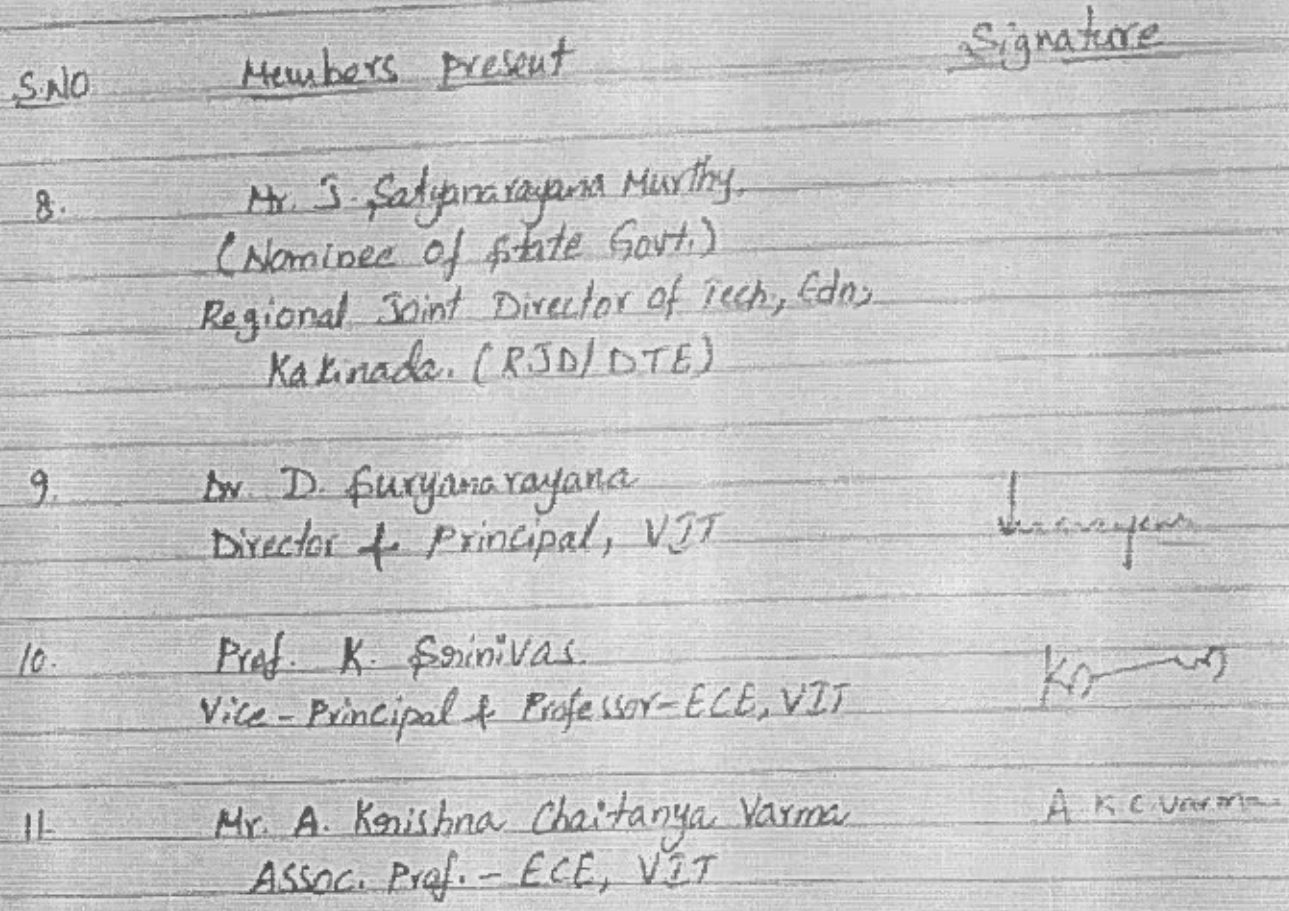 S.NO Members present Signature
8. Mr. J. Satyanarayana Murthy.
(Nominee of State Govt.)
Regional Joint Director of Tech., Edn,
Kakinada. (RJD/DTE)
9. Dr. D. Suryanarayana
Director & Principal, VIT
10. Prof. K. Srinivas.
Vice-Principal & Professor-ECE, VIT
11. Mr. A. Krishna Chaitanya Varma A K C Varma
Assoc. Prof. - ECE, VIT